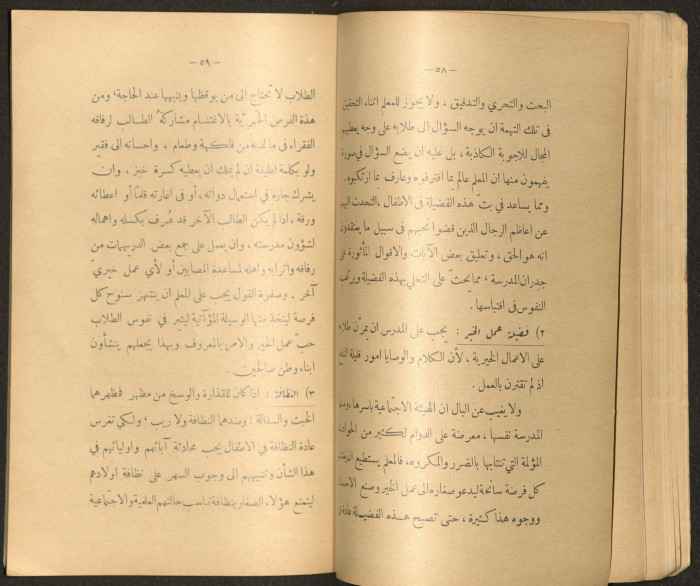 — ٥٨ —
البحث والتحري والتدقيق ، ولا يجوز للمعلم اثناء التحقيق
في تلك التهمة ان يوجه السؤال الى طلابه على وجه يعطيهم
المجال للاجوبة الكاذبة ، بل عليه ان يضع السؤال في صورة
يفهمون منها ان المعلم عالم بما اقترفوه وعارف بما ارتكبوه.
ومما يساعد في بثّ هذه الفضيلة في الاطفال ، التحدث اليهم
عن اعاظم الرجال الذين قضوا نحبهم في سبيل ما يعتقدون
انه هو الحق ، وتعليق بعض الآيات والاقوال المأثورة على
جدران المدرسة ، مما يحثّ على التحلي بهذه الفضيلة ويرغب
النفوس في اقتباسها .
٢) فضيلة عمل الخير : يجب على المدرس ان يمرّن طلابه
على الاعمال الخيرية ، لأن الكلام والوصايا امور قليلة النفع
اذ لم تقترن بالعمل .
ولا يغيب عن البال ان الهيئة الاجتماعية باسرها ، ومنها
المدرسة نفسها ، معرضة على الدوام لكثير من الحوادث
المؤلمة التي تنتابها بالضرر والمكروه، فالمعلم يستطيع ان
كل فرصة سانحة ليدعو صغاره الى عمل الخير وصنع الاحسان
ووجوه هذا كثيرة ، حتى تصبح هذه الفضيلة عادة
— ٥٩ —
الطلاب لا تحتاج الى من يوقظها وينبهها عند الحاجة، ومن
هذه الفرص الحريّة بالاغتنام مشاركة الطالب لرفاقه
الفقراء في ما لديه من فاكهة وطعام ، واحسانه الى فقير
ولو بكلمة لطيفة ان لم يملك ان يعطيه كسرة خبز ، وان
يشرك جاره في استعمال دواته ، أو في اعارته قلماً أو اعطائه
ورقة ، اذا لم يكن الطالب الآخر قد عُرف بكسله واهماله
لشؤون مدرسته ، وان يعمل على جمع بعض الدريهمات من
رفاقه واترابه واهله لمساعدة المصابين أو لأي عمل خيريّ
آخر . وصفوة القول يجب على المعلم ان ينتهز سنوح كل
فرصة ليتخذ منها الوسيلة المؤآتية ليثير في نفوس الطلاب
حبّ عمل الخير والامر بالمعروف وبهذا يجعلهم ينشأون
ابناء وطن صالحين .
٣) النظافة : اذا كان للقذارة والوسخ من مظهر فمظهرهما
الخبث والسفالة ؛ وضدهما النظافة ولا ريب ، ولكي تغرس
عادة النظافة في الاطفال يجب محادثة آبائهم واوليائهم في
هذا الشأن وتنبيههم الى وجوب السهر على نظافة اولادهم
ليتمتع هؤلاء الصغار بنظافة تناسب حالتهم العلمية والاجتماعية